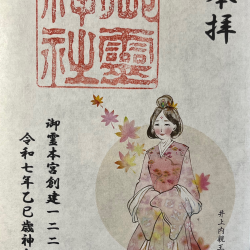 本拝
御霊神社
御霊本宮創建一二二
令和七年乙巳歳神
井上内親王